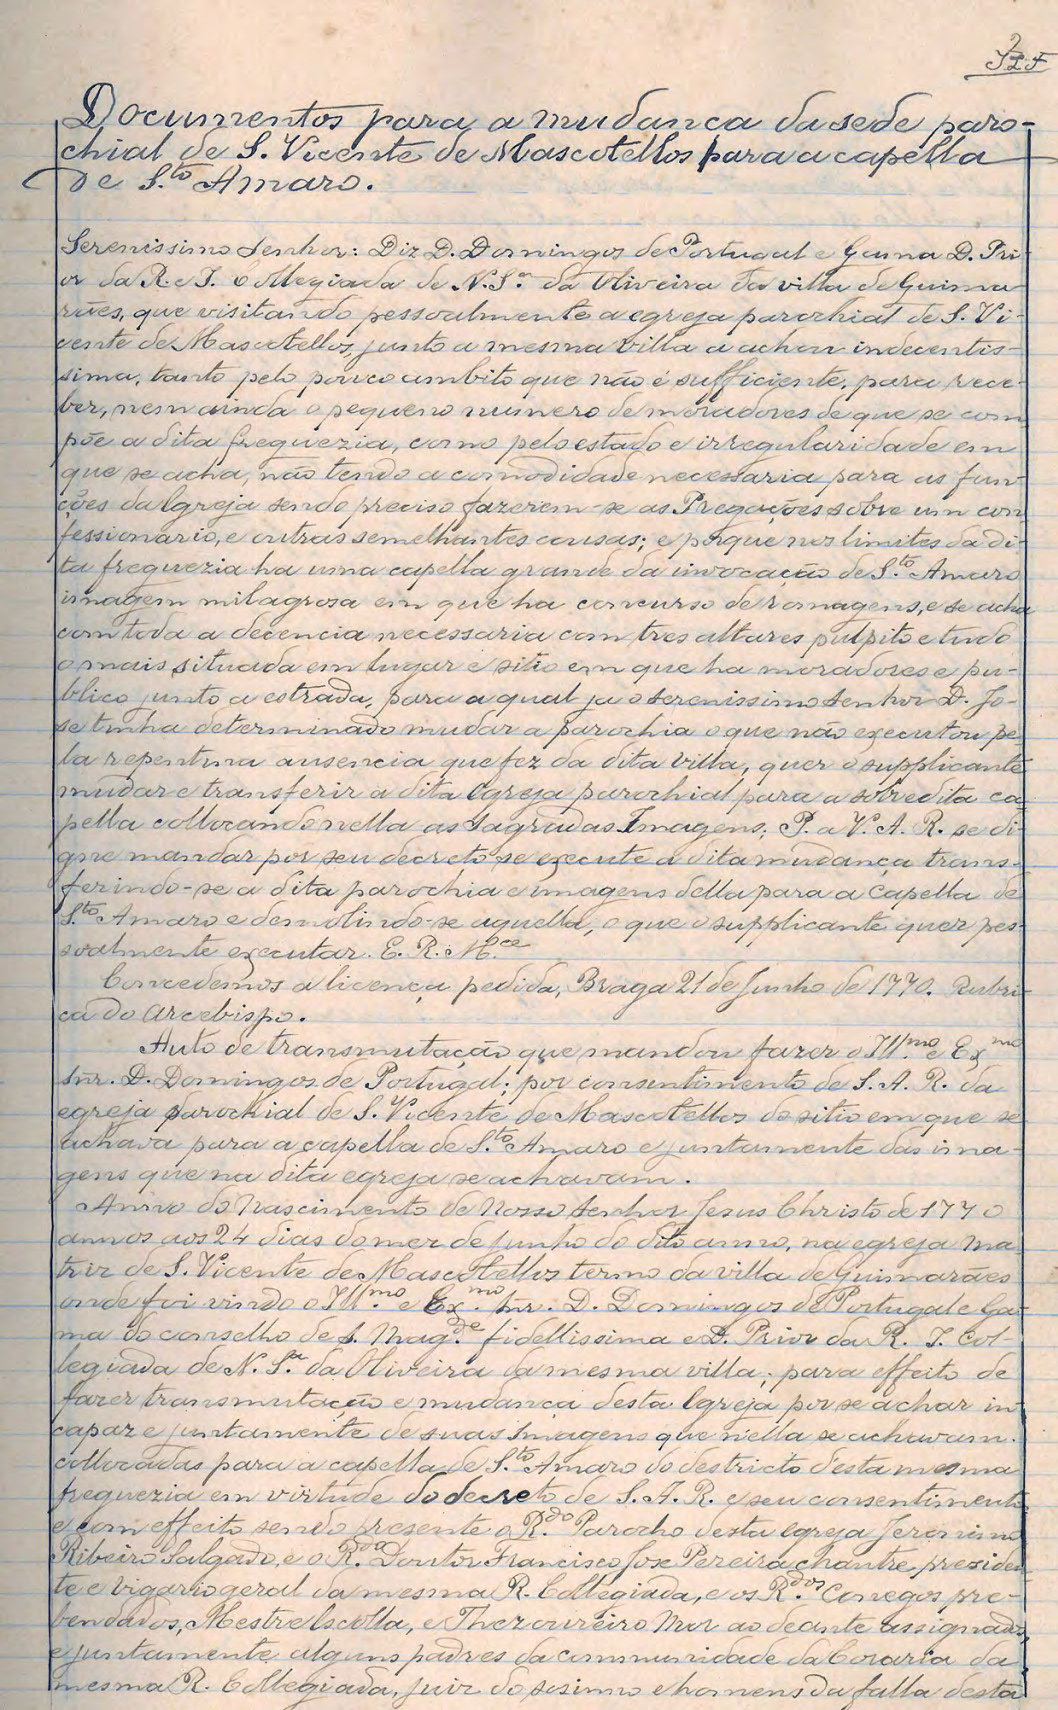 2
Documentos para a mudança da sede paro-
chial de S. Vicente de Mascotellos para a capella
de S.to Amaro.
Serenissimo Senhor: Diz D. Domingos de Portugal e Gama D. Pri-
or da R. e I. Collegiada de N. S.ra da Oliveira da villa de Guima-
rães, que visitando pessoalmente a egreja parochial de S. Vi-
cente de Mascotellos, junto a mesma villa a achou indecentis-
sima, tanto pelo pouco ambito que não é sufficiente, para rece-
ber, nem ainda o pequeno numero de moradores de que se com
põe a dita freguezia, como pelo estado e irregularidade em
que se acha, não tendo a comodidade necessaria para as fun-
ções da Igreja sendo preciso fazerem-se as Pregações sobre um con
fessionario, e outras semelhantes cousas; e porque nos limites da di-
ta freguezia ha uma capella grande da invocação de S.to Amaro
imagem milagrosa em que ha concurso de romagens, e se acha
com toda a decencia necessaria com tres altares pulpito e tudo
o mais situada em lugar e sitio em que ha moradores e pu-
blico junto a estrada, para a qual ja o serenissimo senhor D. Jo-
se tinha determinado mudar a parochia o que não executou pe-
la repentina ausencia que fez da dita villa, quer o supplicante
mudar e transferir a dita Egreja parochial para a sobredita ca
pella collocando nella as sagradas Imagens; P. a V. A. R. se di-
gne mandar por seu decreto se execute a dita mudança trans-
ferindo-se a dita parochia e imagens della para a capella de
S.to Amaro e demolindo-se aquella, o que o supplicante quer pes-
soalmente executar. E. R. M.ce
Concedemos a licença pedida, Braga 21 de Junho de 1770. Rubri-
ca do Arcebispo.
Auto de transmutação que mandou fazer o Ill.mo e Ex.mo
Snr. D. Domingos de Portugal; por consentimento de S. A. R. da
egreja parochial de S. Vicente de Mascotellos do sitio em que se
achava para a capella de S.to Amaro e juntamente das ima-
gens que na dita egreja se achavam.
Anno do Nascimento de Nosso Senhor Jesus Christo de 1770
annos aos 24 dias do mez de Junho do dito anno, na egreja ma-
triz de S. Vicente de Mascotellos termo da villa de Guimarães
onde foi vindo o Ill.mo e Ex.mo Snr. D. Domingos de Portugal e Ga-
ma do conselho de S. Mag.de fidellissima e D. Prior da R. I. Col-
legiada de N. S.ra da Oliveira da mesma villa; para effeito de
fazer transmutação e mudança desta Igreja por se achar in
capaz e juntamente de suas Imagens que n'ella se achavam
collocadas para a capella de S.to Amaro do destricto d'esta mesma
freguezia em virtude do decreto de S. A. R. e seu consentimento
e com effeito sendo presente o R.do Parocho desta egreja Jeronimo
Ribeiro Salgado, e o R.do Doutor Francisco Jose Pereira chantre, presiden-
te e Vigario geral da mesma R. Collegiada, e os R.dos Conegos pre-
bendados, Mestre Escolla, e Thezoureiro Mor ao deante assignados,
e juntamente alguns padres da communidade da Coraria da
mesma R. Collegiada, juiz do sosinno e homens da falla desta